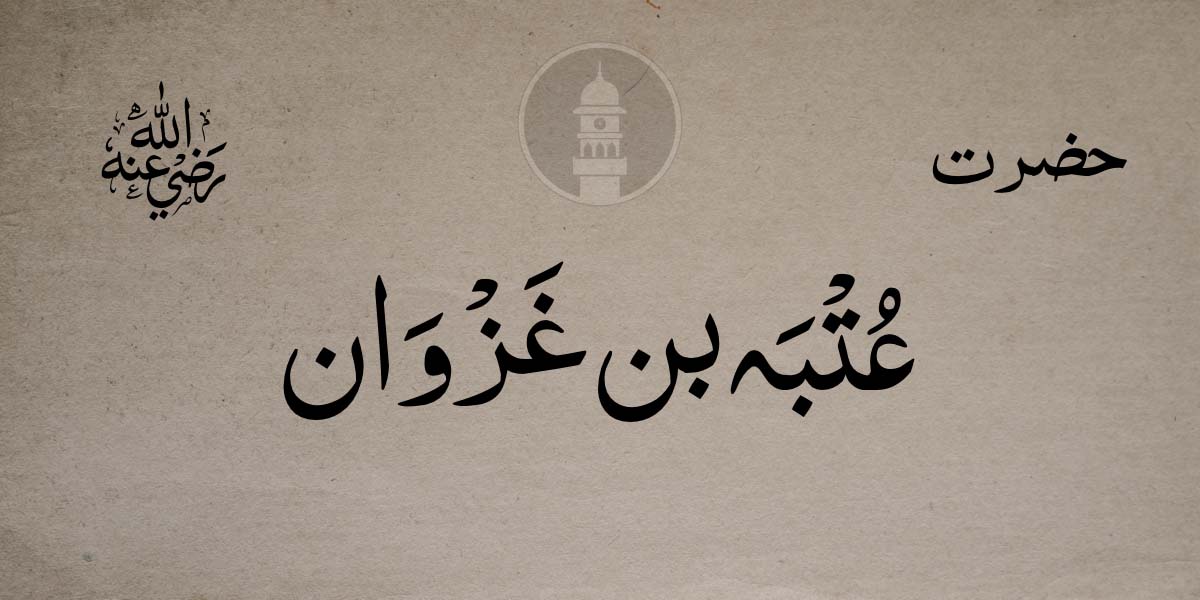 حضرت
عُتْبَہ بن غَزْوَان
رَضِيَ اللّٰهُ عَنْهُ